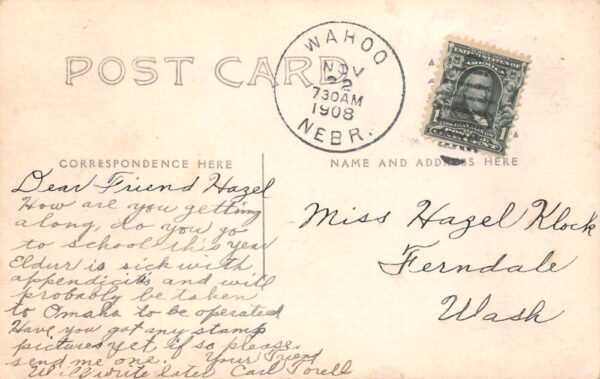 POST CARD
WAHOO
NOV
22
730AM
1908
NEBR.
UNITED STATES OF
AMERICA
1
1
CORRESPONDENCE HERE
NAME AND ADDRESS HERE
Dear Friend Hazel
How are you getting
along, do you go
to school this year
Eldur is sick with
appendicitis and will
probably be taken
to Omaha to be operated
Have you got any stamp
pictures yet if so please
send me one. Your Friend
Will write later Carl Torell
Miss Hazel Klock
Ferndale
Wash